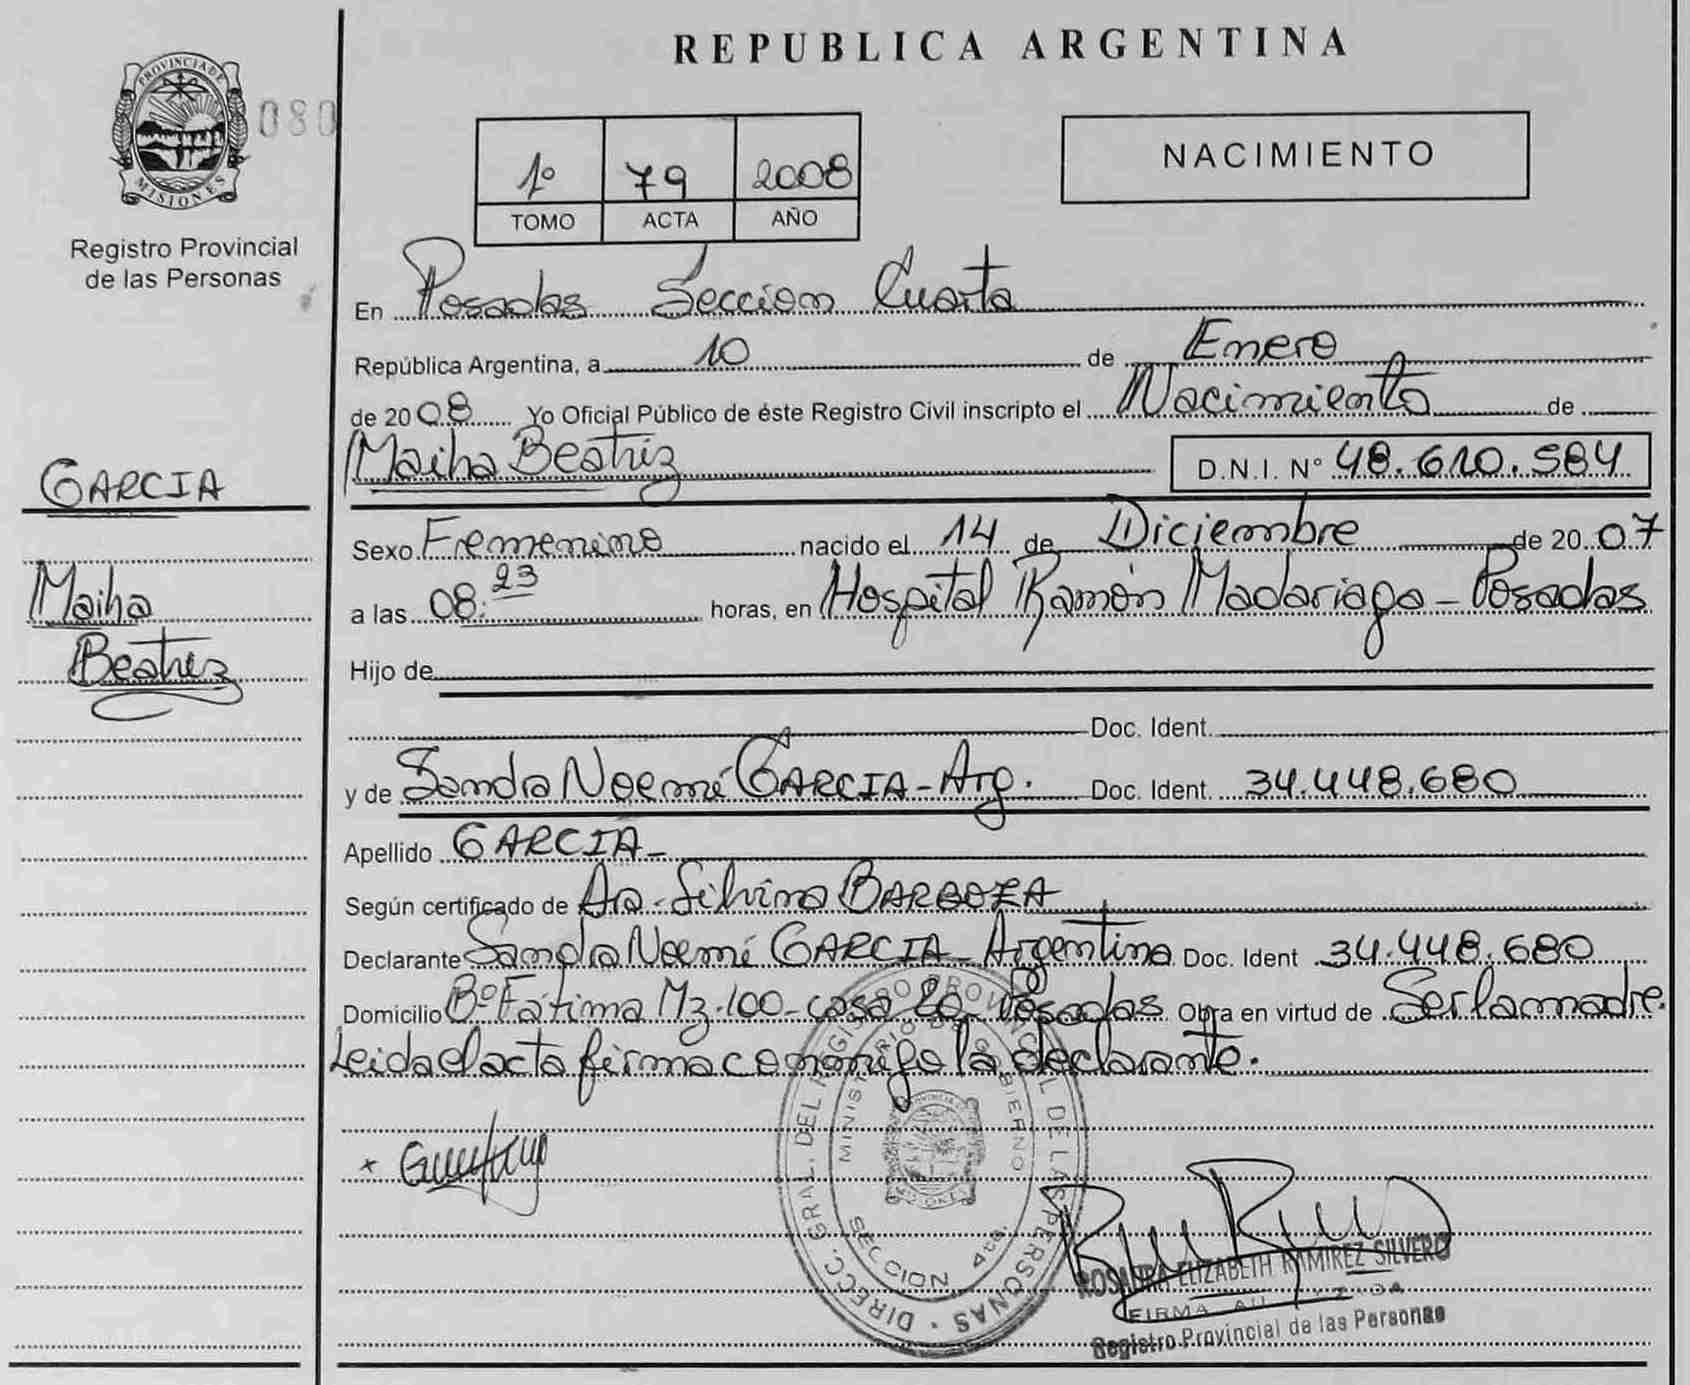 REPUBLICA ARGENTINA
PROVINCIA DE
MISIONES
080
Registro Provincial
de las Personas
1º 79 2008
TOMO ACTA AÑO
NACIMIENTO
En Posadas Seccion Cuarta
República Argentina, a 10 de Enero
de 2008 Yo Oficial Público de éste Registro Civil inscripto el Nacimiento de
Maiha Beatriz D.N.I. Nº 48.610.584
GARCIA
Maiha
Beatriz
Sexo Femenino nacido el 14 de Diciembre de 2007
a las 08:23 horas, en Hospital Ramón Madariaga - Posadas
Hijo de
Doc. Ident.
y de Sandra Noemí GARCIA - Arg. Doc. Ident. 34.448.680
Apellido GARCIA -
Según certificado de Dra. Silvina BARBOZA
Declarante Sandra Noemí GARCIA - Argentina Doc. Ident 34.448.680
Domicilio Bº Fátima Mz. 100 - casa 20 - Posadas Obra en virtud de Ser la madre.
Leida el acta firma conmigo la declarante.
DIRECC. GRAL. DEL REGISTRO PROVINCIAL DE LAS PERSONAS
MINISTERIO DE GOBIERNO
SECCION 4ta.
ROSAURA ELIZABETH RAMIREZ SILVERO
FIRMA AUTORIZADA
Registro Provincial de las Personas